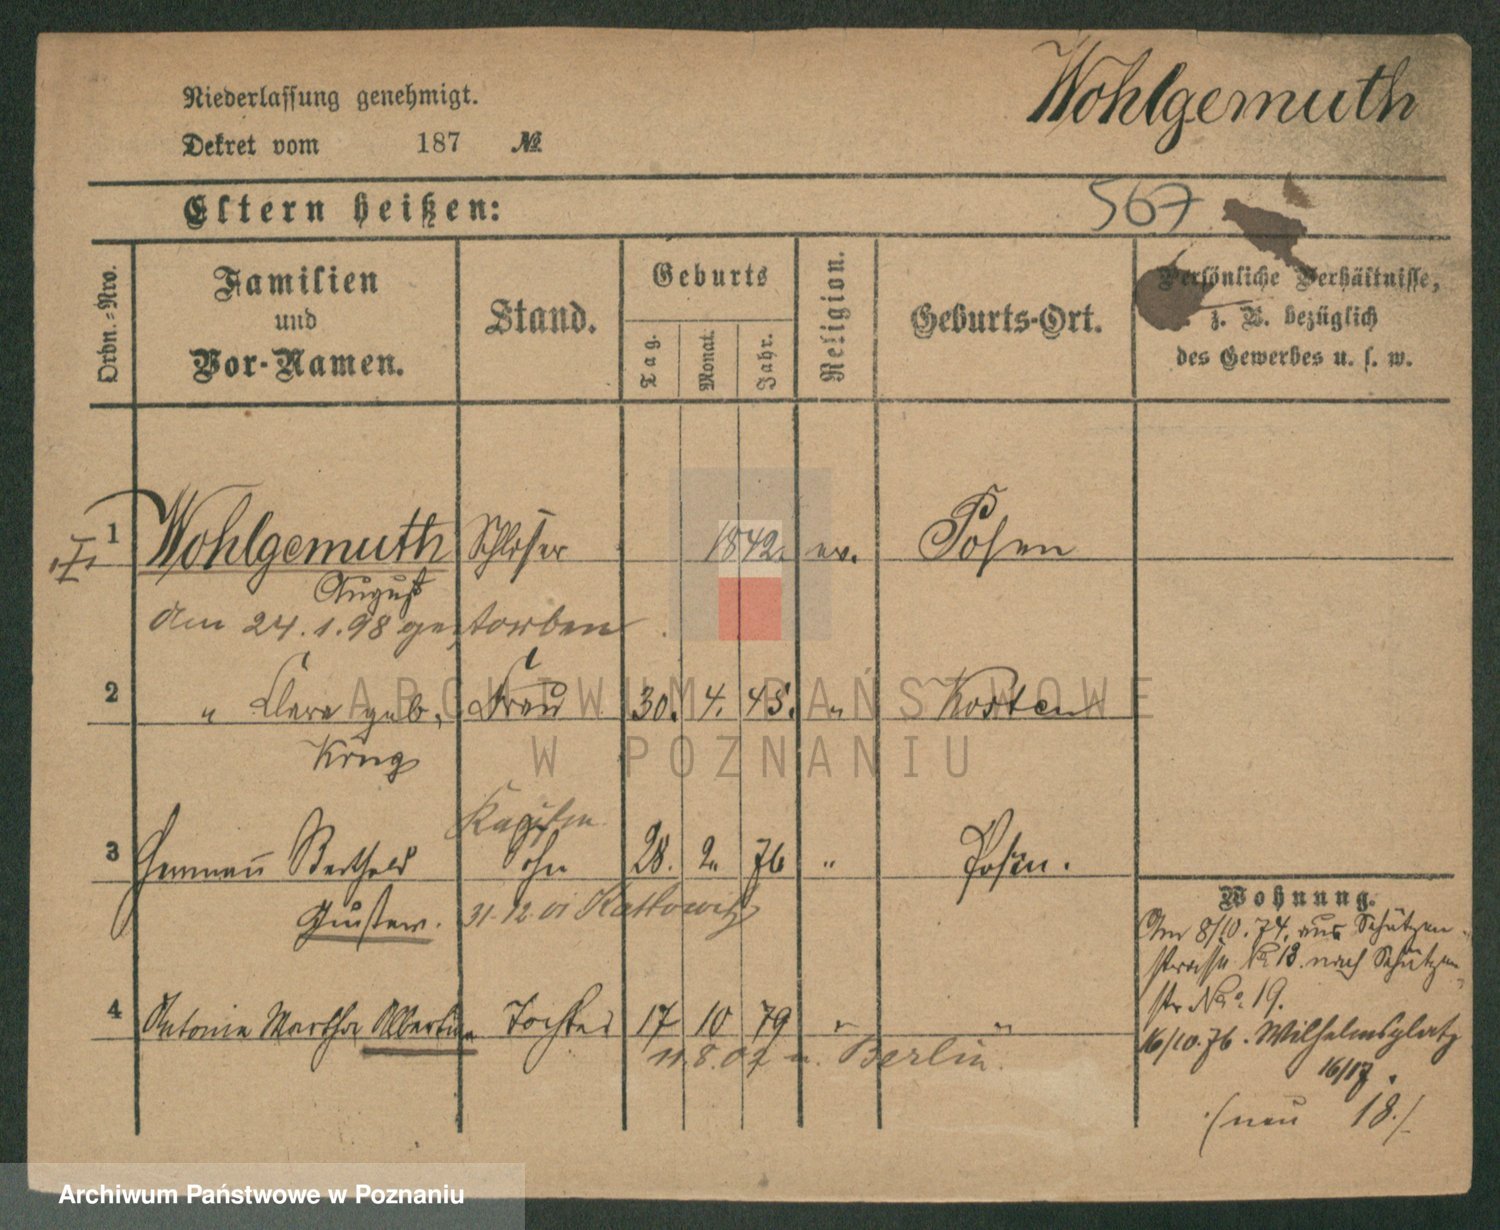 Niederlassung genehmigt.
Wohlgemuth
Dekret vom 187 №
Eltern heißen:
567
Ordn.-Nro.
Familien und Vor-Namen.
Stand.
Geburts
Tag.
Monat.
Jahr.
Religion.
Geburts-Ort.
Persönliche Verhältnisse,
z. B. bezüglich
des Gewerbes u. s. w.
1 Wohlgemuth Schlosser 1842. ev. Posen
August
am 24.1.98 gestorben
2 " Clara geb. Frau 30. 4. 45. " Kosten
Krug
3 Hermann Berthold Sohn 28. 2. 76 " Posen.
Gustav. 31.12.01 Kattowitz
Wohnung.
Am 8/10. 74. aus Schützen
strasse No 13 nach Schützen
str No 19.
4 Antonie Martha Albertine Tochter 17 10 79 " "
11.8.02 n. Berlin.
16/10. 76. Wilhelmsplatz
16/17.
/neu 18./
ARCHIWUM PAŃSTWOWE
W POZNANIU
Archiwum Państwowe w Poznaniu